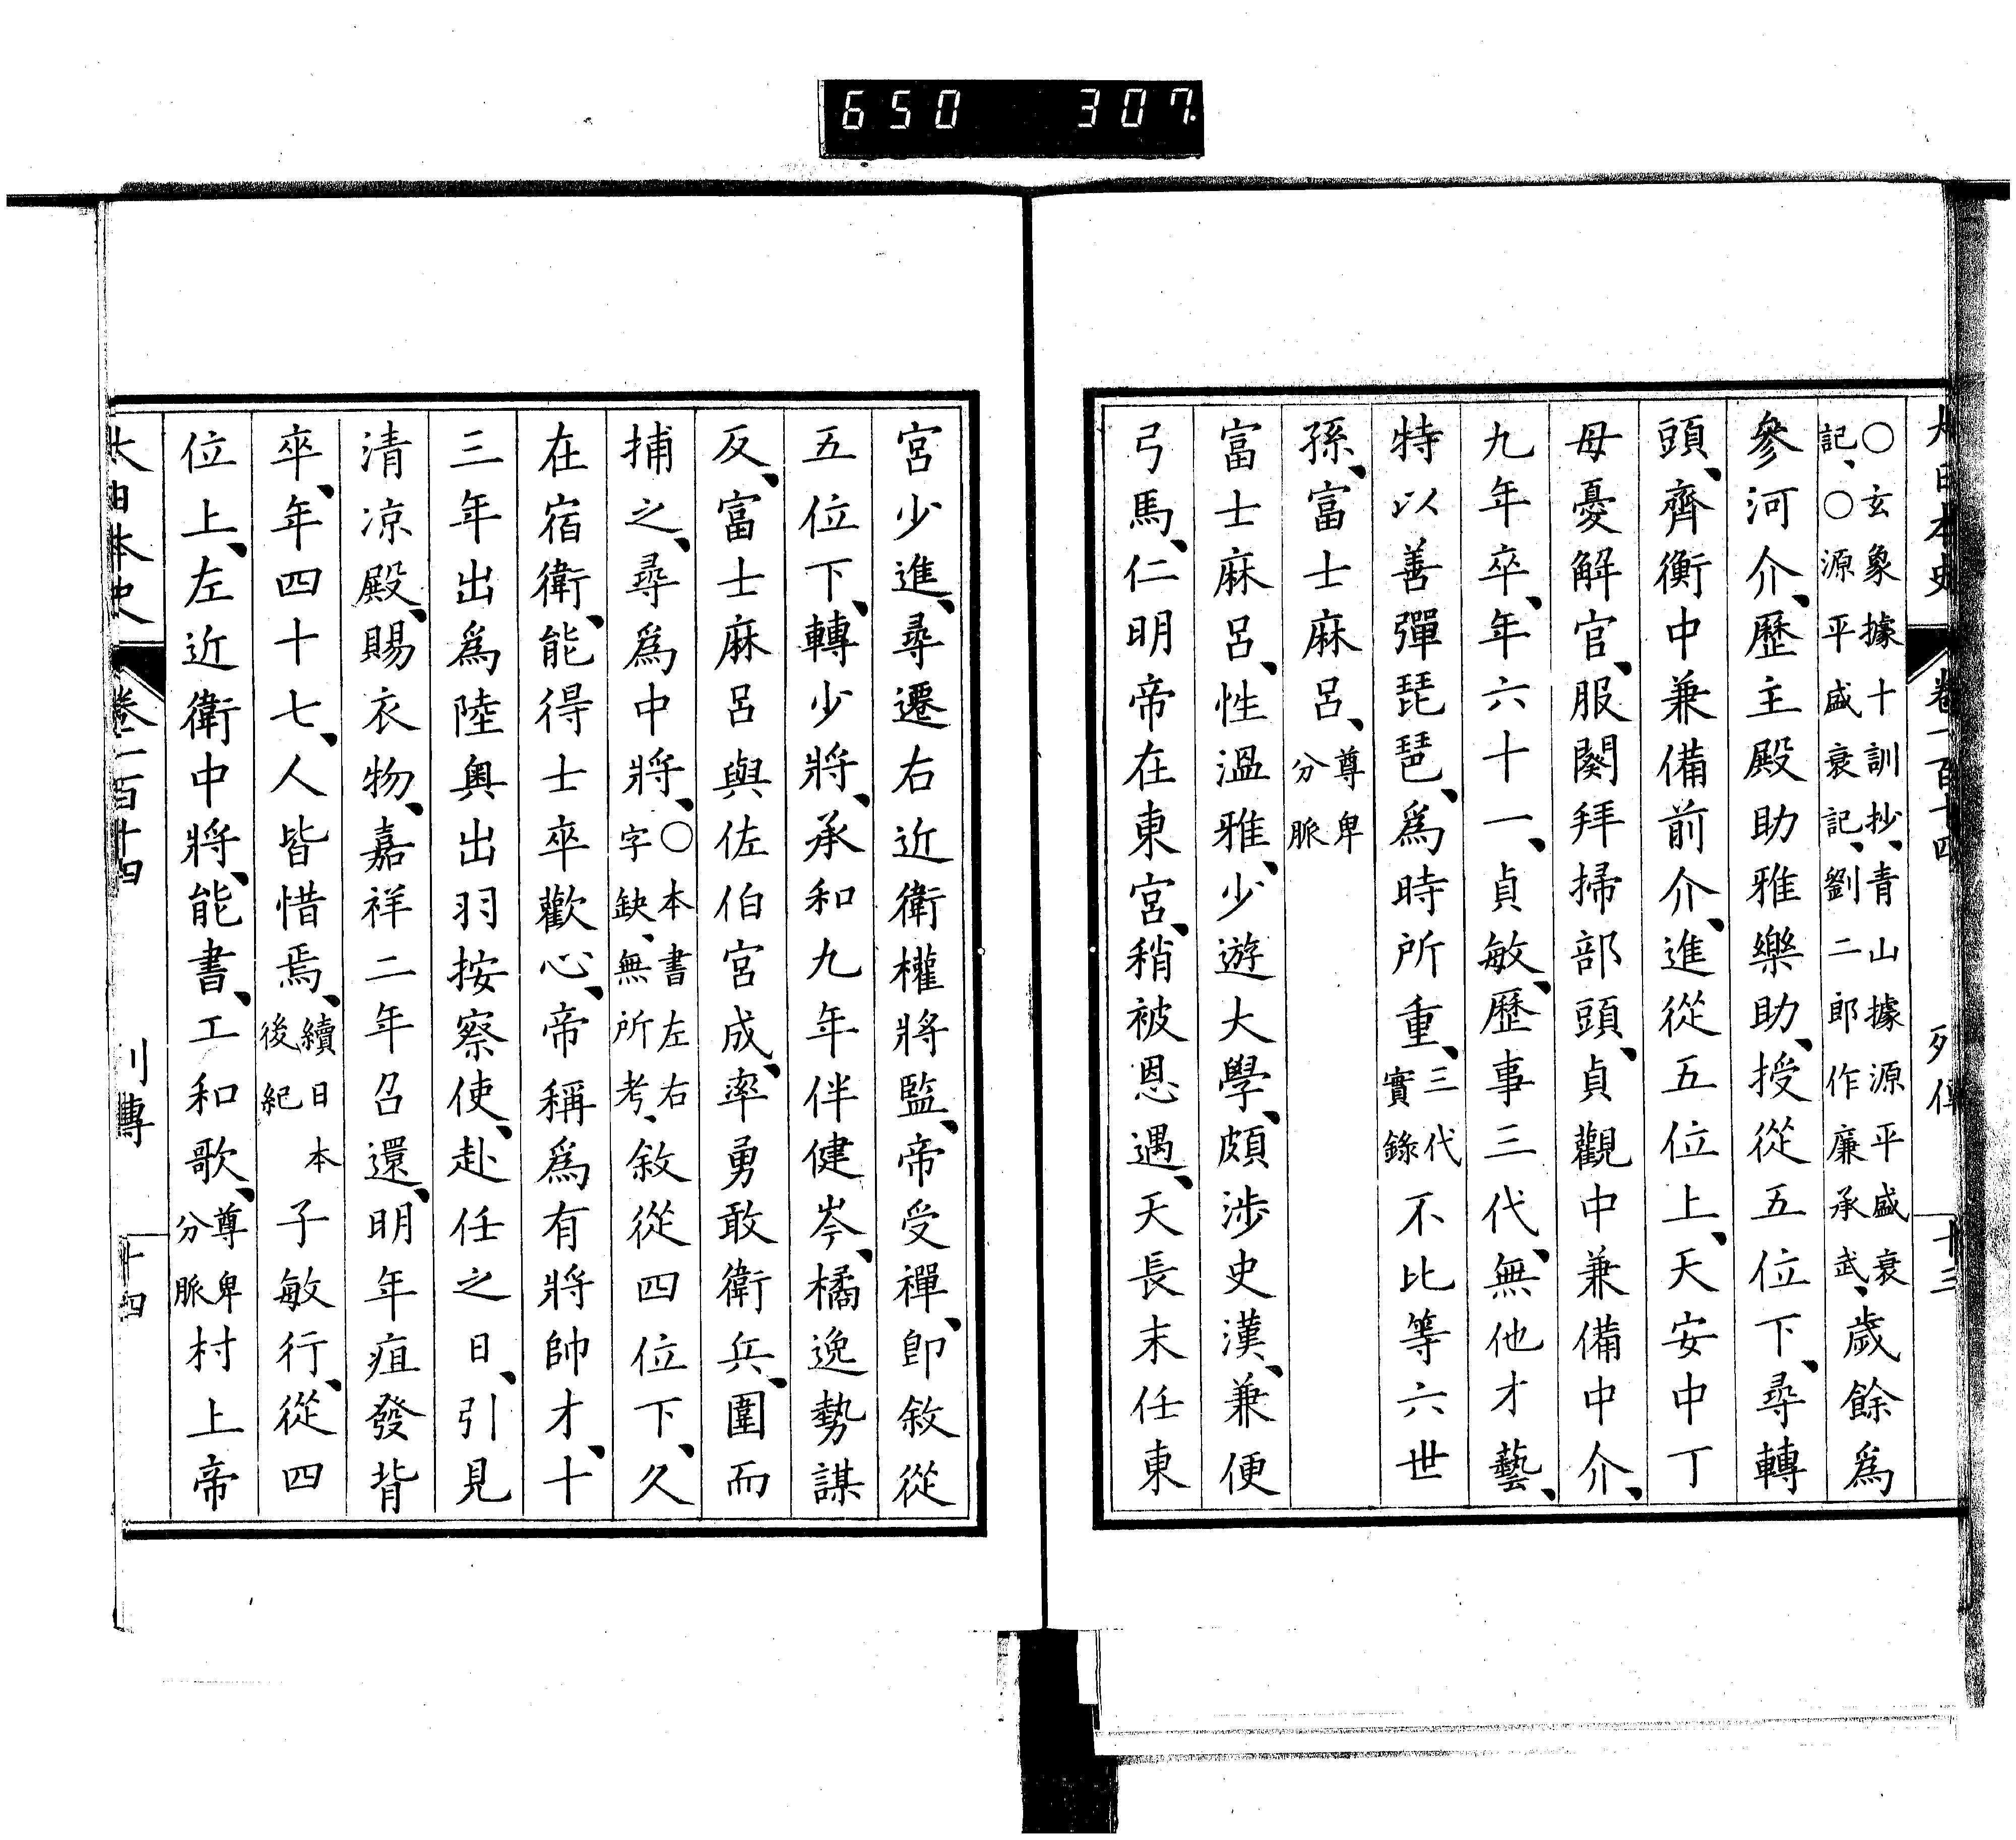 650 307
大日本史 卷一百十四 列傳 十三
○玄象據十訓抄、青山據源平盛衰
記、○源平盛衰記、劉二郎作廉承武、歲餘爲
參河介、歷主殿助雅樂助、授從五位下、尋轉
頭、齊衡中兼備前介、進從五位上、天安中丁
母憂解官、服闋拜掃部頭、貞觀中兼備中介、
九年卒、年六十一、貞敏、歷事三代、無他才藝、
特以善彈琵琶、爲時所重、三代實錄不比等六世
孫、富士麻呂、尊卑分脈
富士麻呂、性溫雅、少遊大學、頗涉史漢、兼便
弓馬、仁明帝在東宮、稍被恩遇、天長末任東
宮少進、尋遷右近衛權將監、帝受禪、卽敘從
五位下、轉少將、承和九年伴健岑、橘逸勢謀
反、富士麻呂與佐伯宮成、率勇敢衛兵、圍而
捕之、尋爲中將、○本書左右字缺、無所考、敘從四位下、久
在宿衛、能得士卒歡心、帝稱爲有將帥才、十
三年出爲陸奧出羽按察使、赴任之日、引見
清凉殿、賜衣物、嘉祥二年召還、明年疽發背
卒、年四十七、人皆惜焉、續日本後紀子敏行、從四
位上、左近衛中將、能書、工和歌、尊卑分脈村上帝
大日本史 卷一百十四 列傳 十四